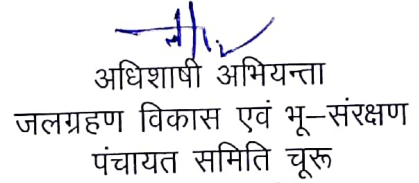 अधिशाषी अभियन्ता
जलग्रहण विकास एवं भू–संरक्षण
पंचायत समिति चूरू